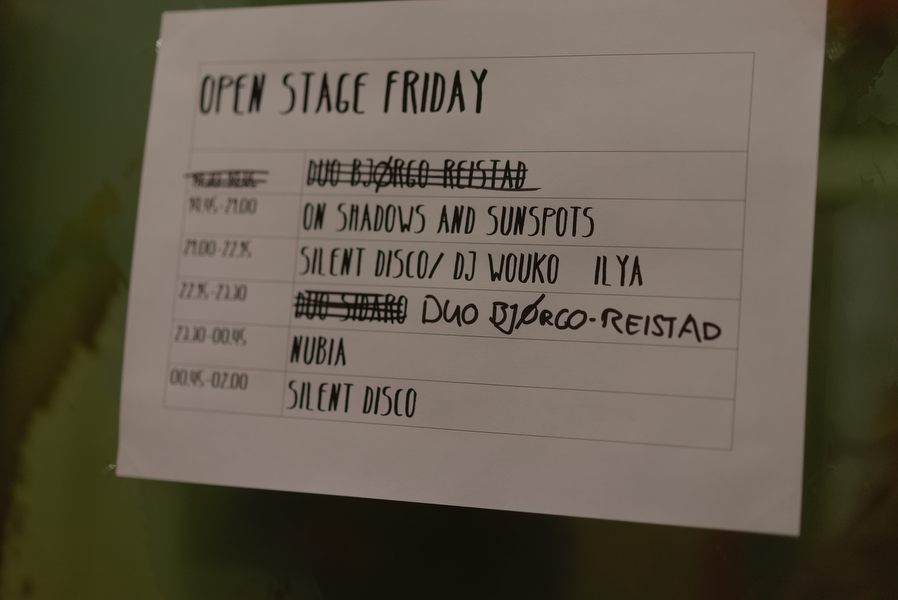 OPEN STAGE FRIDAY
DUO BJØRGO REISTAD
19.45-21.00 ON SHADOWS AND SUNSPOTS
21.00-22.15 SILENT DISCO/ DJ WOUKO ILYA
22.15-23.30 DUO SIDARO DUO BJØRGO-REISTAD
23.30-00.45 NUBIA
00.45-02.00 SILENT DISCO